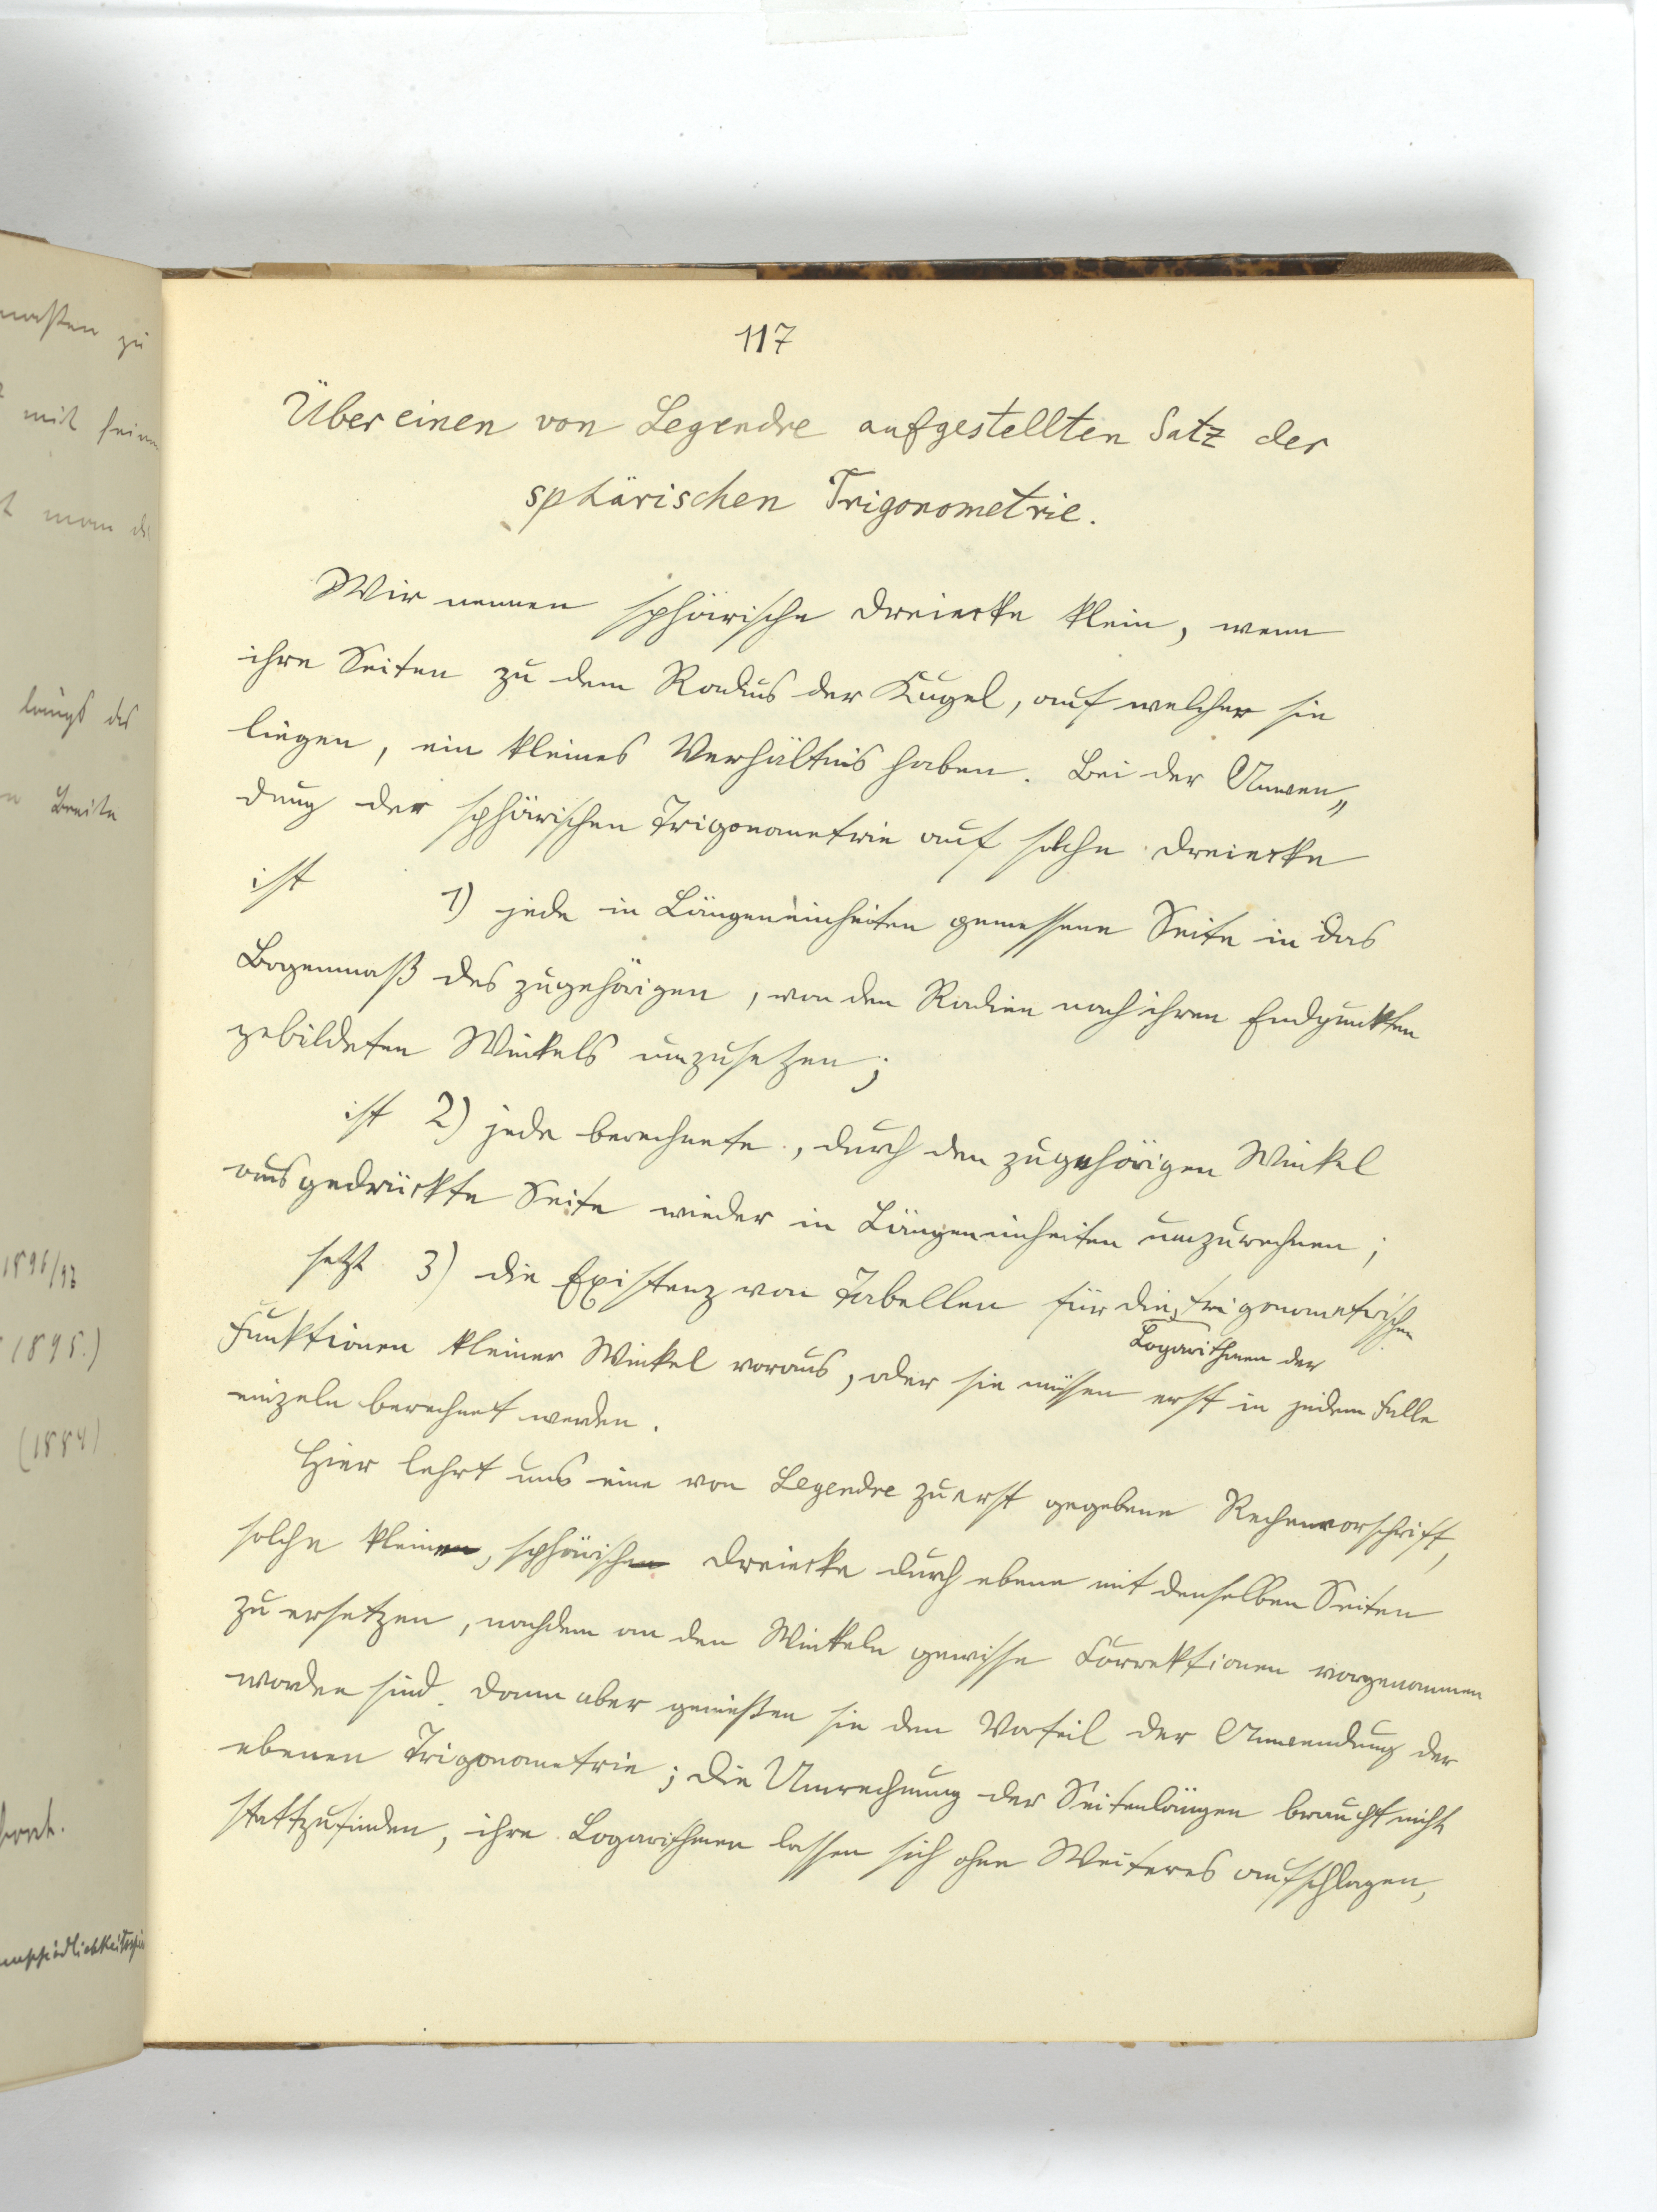 117
Über einen von Legendre aufgestellten Satz der
sphärischen Trigonometrie.
Wir nennen sphärische Dreiecke klein, wenn
ihre Seiten zu dem Radius der Kugel, auf welcher sie
liegen, ein kleines Verhältnis haben. Bei der Anwen„
dung der sphärischen Trigonometrie auf solche Dreiecke
ist 1) jede in Längeneinheiten gemessene Seite in das
Bogenmaß des zugehörigen, von den Radien nach ihren Endpunkten
gebildeten Winkels umzusetzen;
ist 2) jede berechnete, durch den zugehörigen Winkel
ausgedrückte Seite wieder in Längeneinheiten umzurechnen;
setzt 3) die Existenz von Tabellen für die trigonometrischen
Logarithmen der
Funktionen kleiner Winkel voraus, oder sie müssen erst in jedem Falle
einzeln berechnet werden.
Hier lehrt uns eine von Legendre zuerst gegebene Rechenvorschrift,
solche kleinen, sphärischen Dreiecke durch ebene mit denselben Seiten
zu ersetzen, nachdem an den Winkeln gewisse Correktionen vorgenommen
worden sind. Dann aber genießen sie den Vorteil der Anwendung der
ebenen Trigonometrie; die Umrechnung der Seitenlängen braucht nicht
stattzufinden, ihre Logarithmen lassen sich ohne Weiteres aufschlagen,
zu
mit
man
längs des
Breite
1896/97
1895.)
(1884)